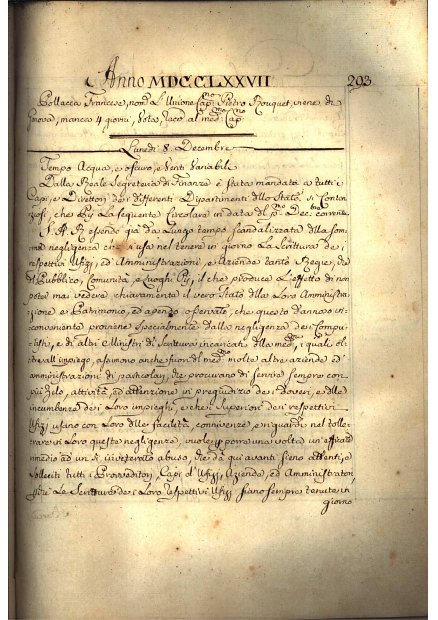 Anno MDCCLXXVII 293
Pollacca Francese, nom.ta L'Unione Cap.no Pietro Rouquet, viene di
Genova, manca 4 giorni, Vota, racc. al med.mo Cap.no
Lunedì 8. Decembre
Tempo Acqua, e oscuro, e Venti Variabili
Dalla Reale Segreteria di Finanze è stata mandata a tutti i
Capi, e Direttori dei differenti Dipartimenti dello Stato, sì Conten
ziosi, che Pij La seguente Circolare in data del p.mo Dec.bre corrente
S. A. R. essendo già da Lungo tempo scandalizzata della som
ma negligenza che si usa nel tenere in giorno La Scrittura dei
respettivi Ufizj, ed Amministrazioni, e Aziende tanto Regie, che
del Pubblico, Comunità, e Luoghi Pij, il che produce L'effetto di non
poter mai vedere chiaramente il vero Stato della Loro Amministra
zione e Patrimonio, ed avendo osservato, che questo dannoso in
conveniente proviene specialmente dalla negligenza dei Compu
tisti, e di altri Ministri di Scrittura incaricati della med.ma, i quali ol
tre all'impiego, assumono anche fuori del med.mo molte altre aziende, ed
amministrazioni di particolari, che procurano di servire sempre con
più zelo, attività, ed attenzione in pregiudizio dei i doveri, e delle
incumbenze dei Loro impieghi, e che i Superiori dei respettivi
Ufizj usano con Loro delle facilità, connivenze, e riguardi nel tolle
rare si Loro queste negligenze, vuole si ponga una volta un efficace
rimedio ad un sì inveterato abuso, che da qui avanti sieno attenti, e
solleciti tutti i Provveditori, Capi d'Ufizj, Aziende, ed Amministratori
che Le Scritture dei Loro respettivi Ufizj siano sempre tenute in
giorno